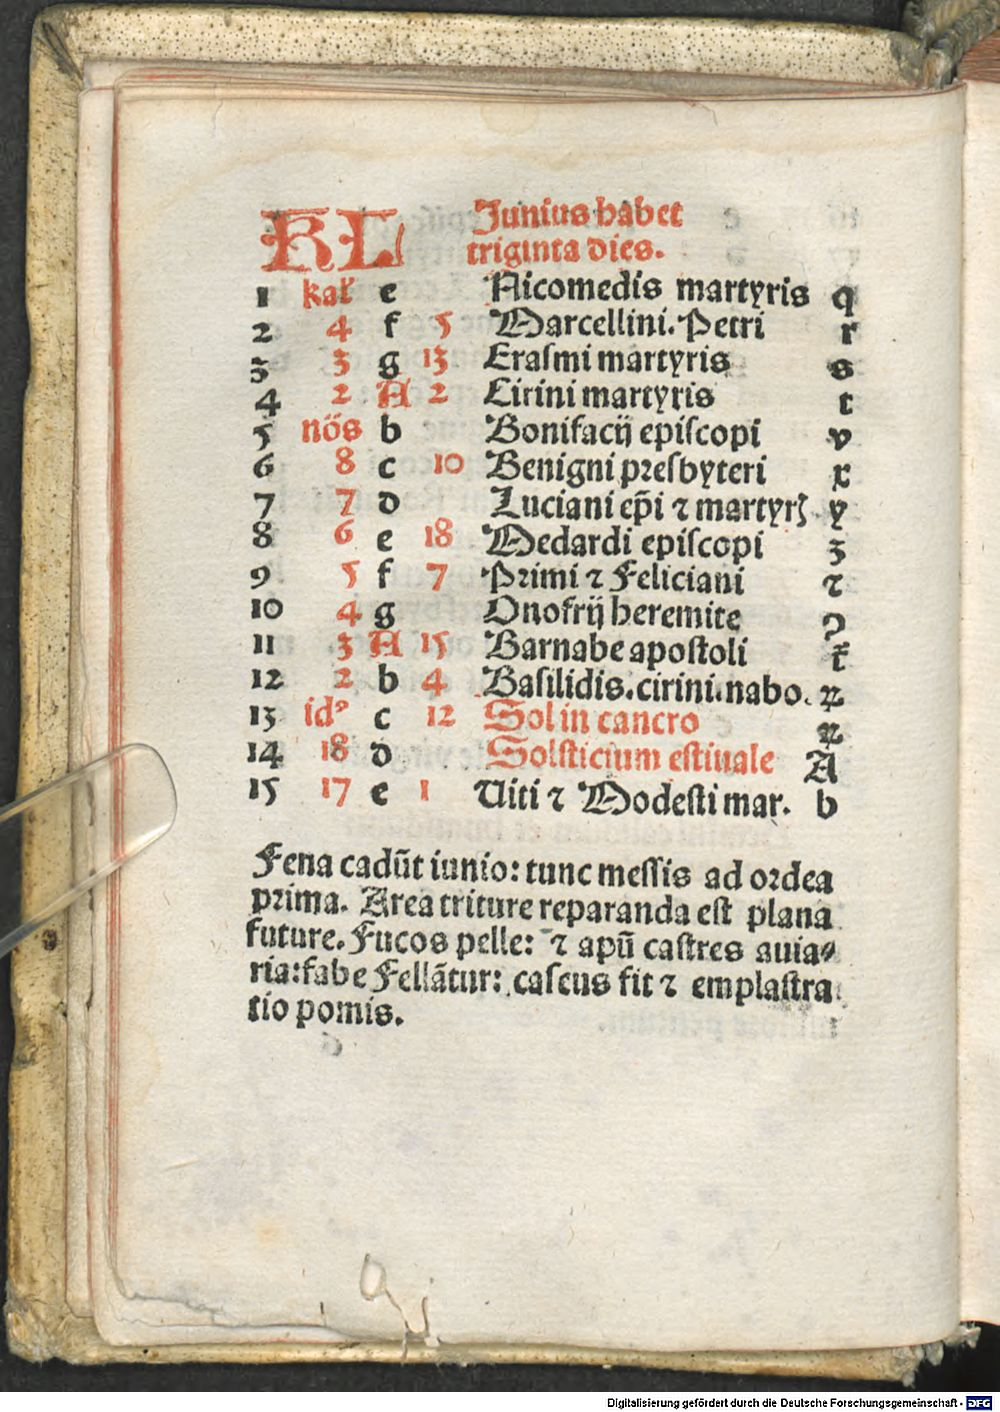 KL Junius habet
triginta dies.
1 kal' e Nicomedis martyris q
2 4 f 5 Marcellini. Petri r
3 3 g 13 Erasmi martyris s
4 2 A 2 Cirini martyris t
5 nōs b Bonifacij episcopi v
6 8 c 10 Benigni presbyteri x
7 7 d Luciani ep̄i ⁊ martyrꝭ y
8 6 e 18 Medardi episcopi z
9 5 f 7 Primi ⁊ Feliciani ⁊
10 4 g Onofrij heremite ꝯ
11 3 A 15 Barnabe apostoli
12 2 b 4 Basilidis.cirini.nabo.
13 idꝰ c 12 Sol in cancro
14 18 d Solsticium estiuale A
15 17 e 1 Uiti ⁊ Modesti mar. b
Fena cadūt iunio: tunc messis ad ordea
prima. Area triture reparanda est plana
future. Fucos pelle: ⁊ apū castres auia⸗
ria: fabe Fellātur: caseus fit ⁊ emplastra
tio pomis.
Digitalisierung gefördert durch die Deutsche Forschungsgemeinschaft - DFG